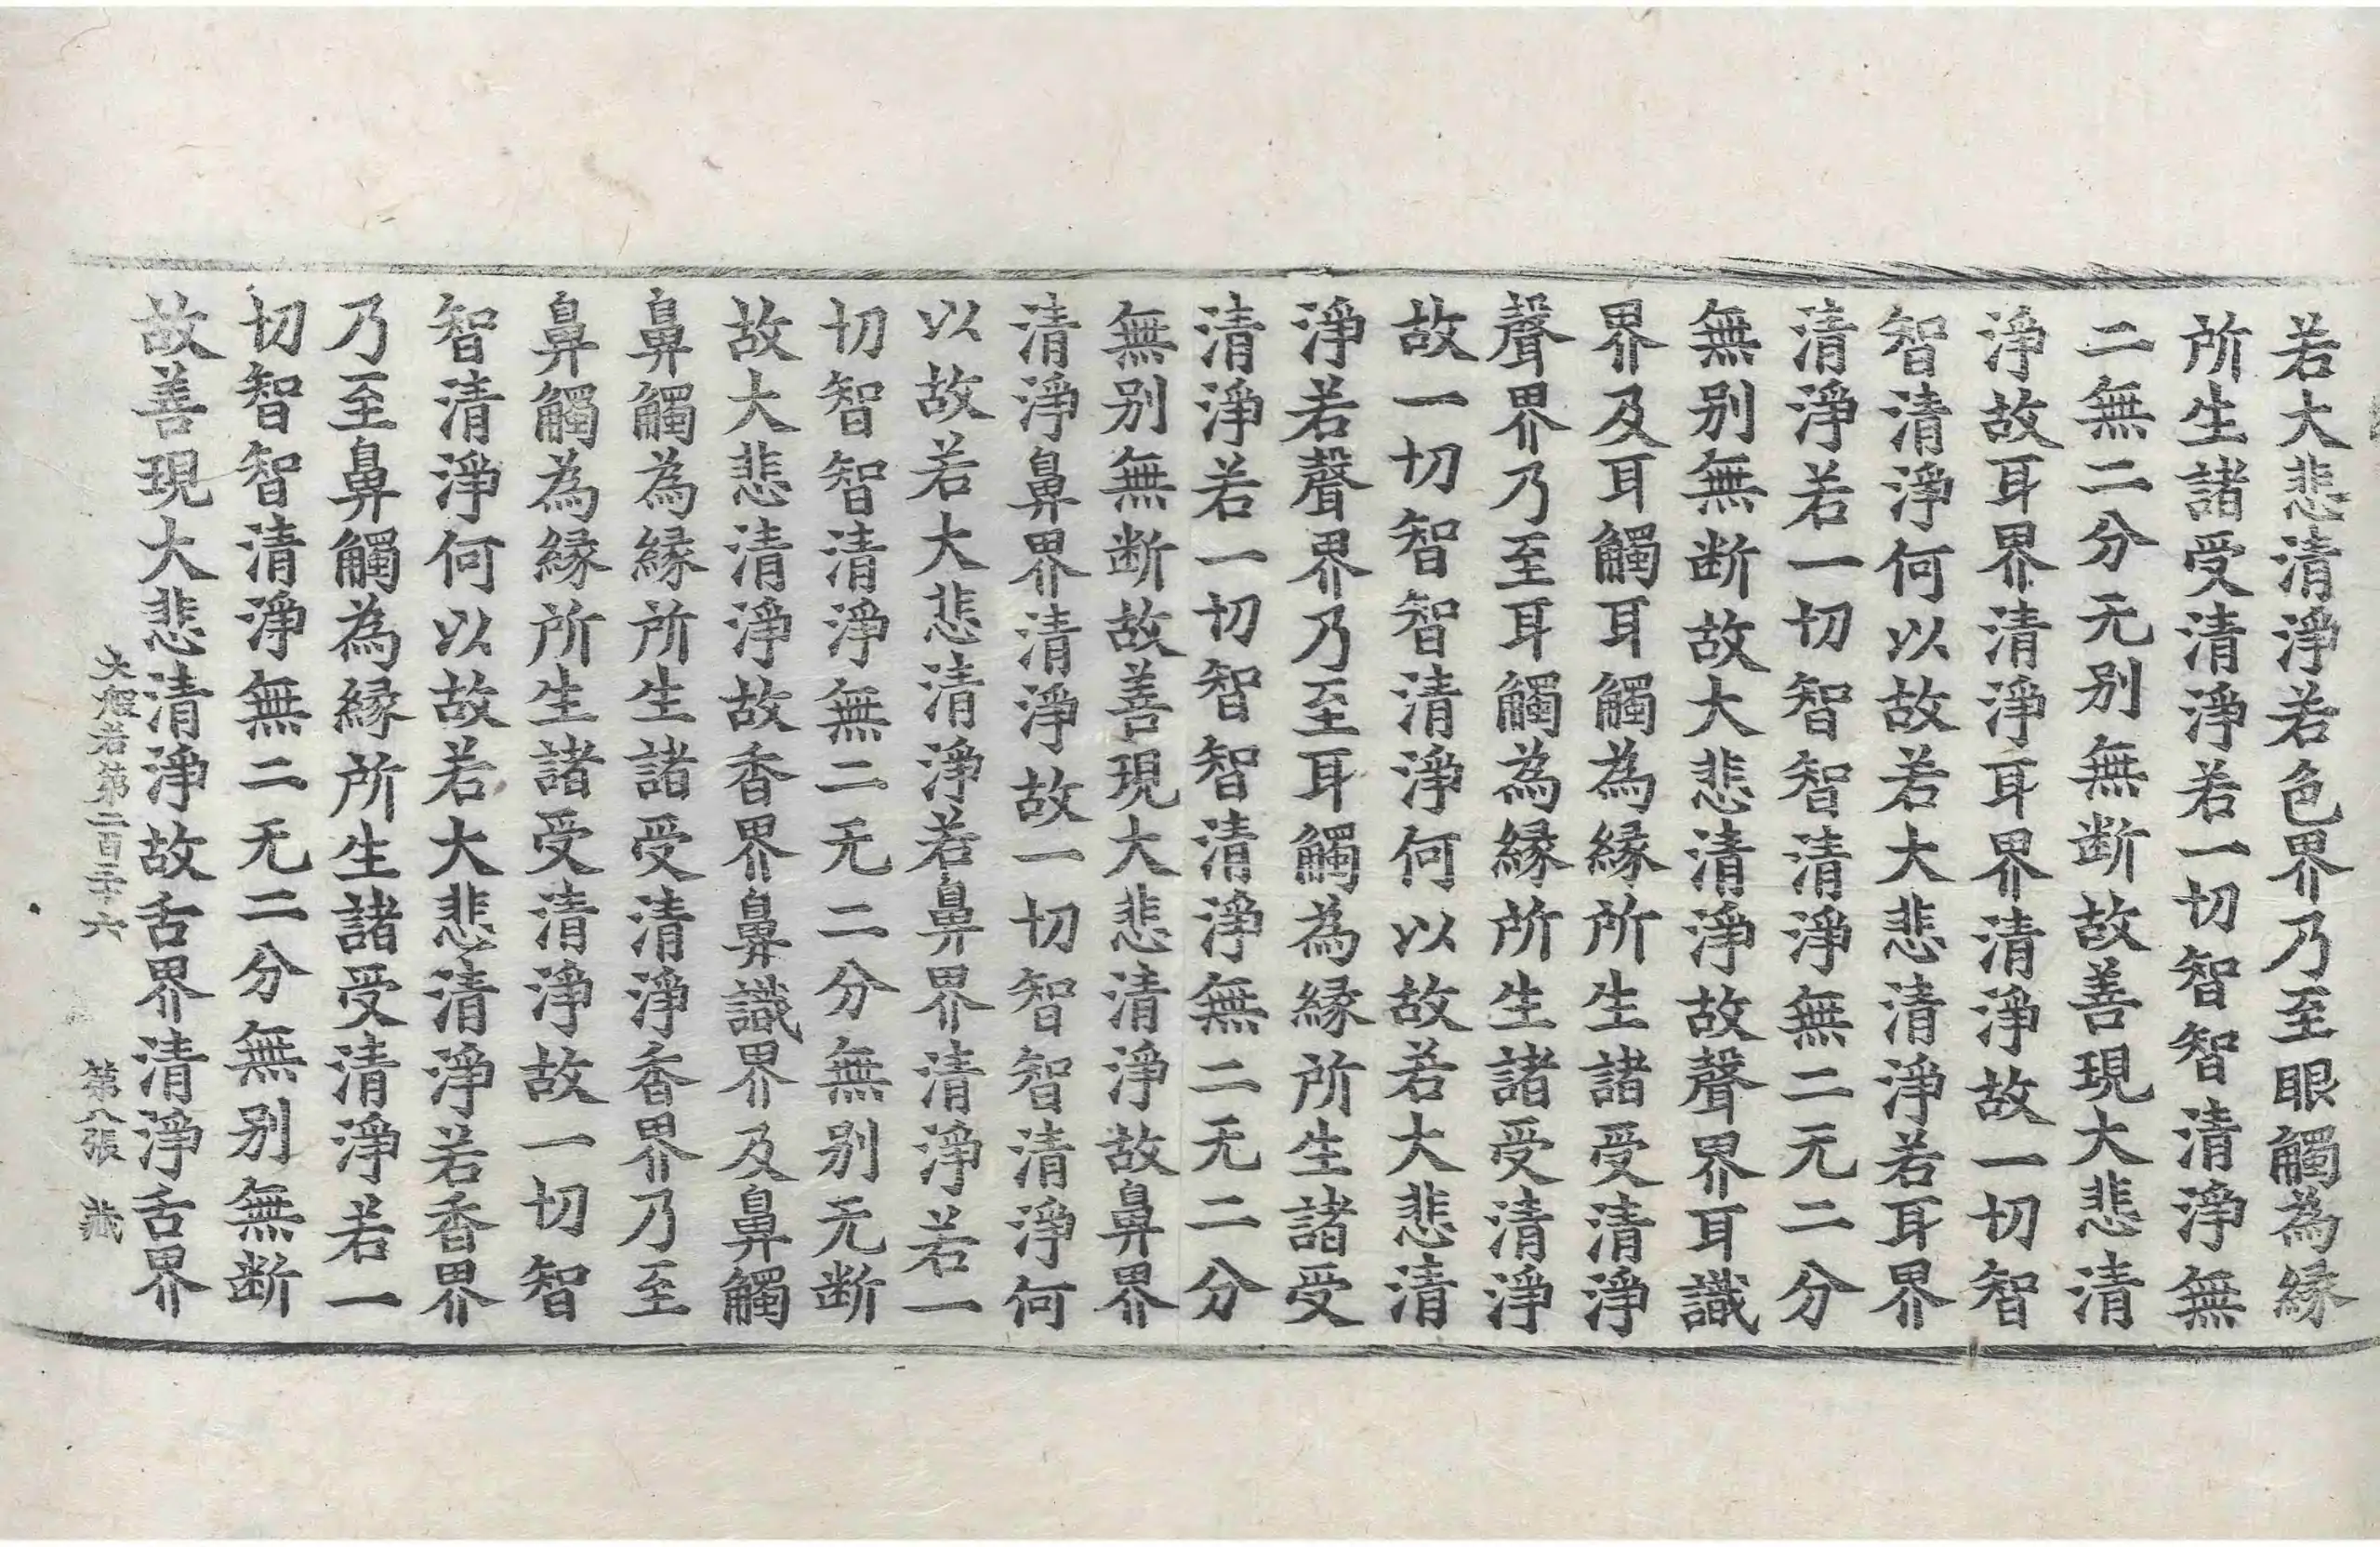 若大悲清淨若色界乃至眼觸為緣
所生諸受清淨若一切智智清淨無
二無二分无別無断故善現大悲清
淨故耳界清淨耳界清淨故一切智
智清淨何以故若大悲清淨若耳界
清淨若一切智智清淨無二无二分
無別無断故大悲清淨故聲界耳識
界及耳觸耳觸為緣所生諸受清淨
聲界乃至耳觸為緣所生諸受清淨
故一切智智清淨何以故若大悲清
淨若聲界乃至耳觸為緣所生諸受
清淨若一切智智清淨無二无二分
無別無断故善現大悲清淨故鼻界
清淨鼻界清淨故一切智智清淨何
以故若大悲清淨若鼻界清淨若一
切智智清淨無二无二分無別无断
故大悲清淨故香界鼻識界及鼻觸
鼻觸為緣所生諸受清淨香界乃至
鼻觸為緣所生諸受清淨故一切智
智清淨何以故若大悲清淨若香界
乃至鼻觸為緣所生諸受清淨若一
切智智清淨無二无二分無別無断
故善現大悲清淨故舌界清淨舌界
大般若第二百二十六 第八張